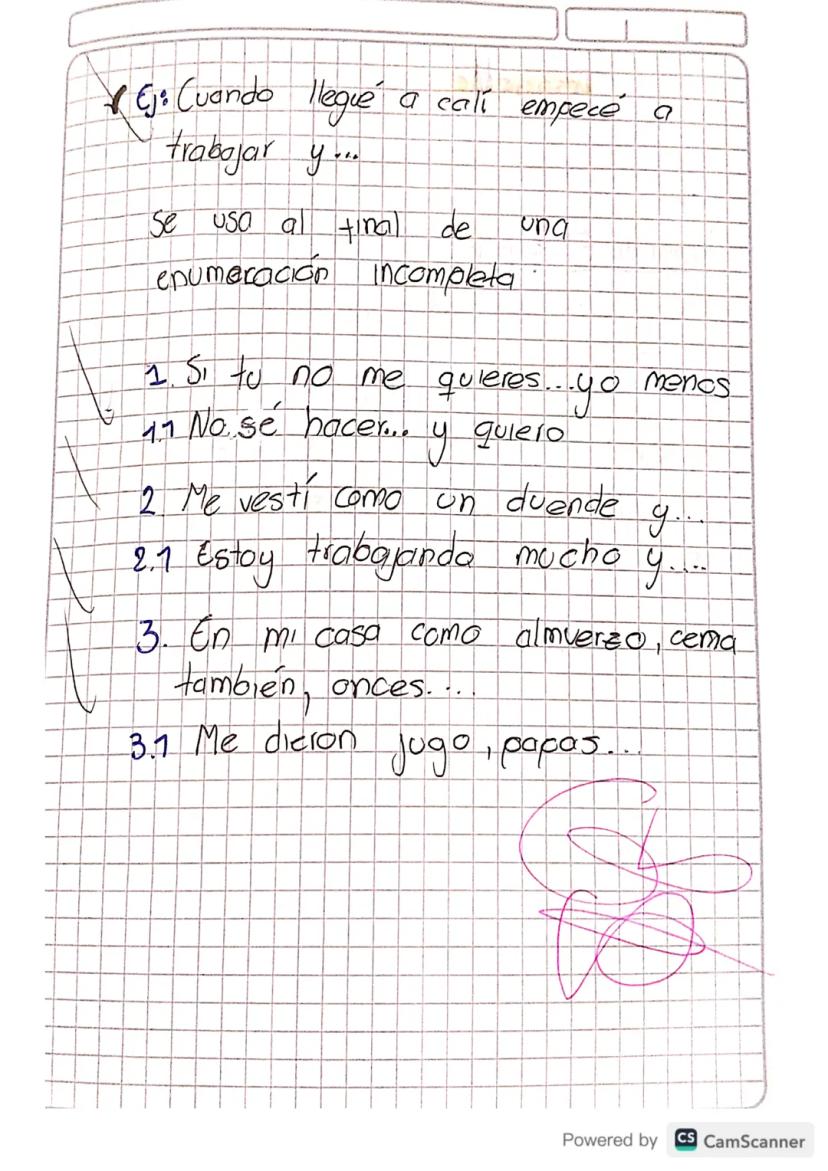 Ej: Cuando llegué a cali empecé a
trabajar y...
se usa al final de una
enumeración incompleta
1. Si tu no me quieres...yo menos
1.1 No sé hacer... y quiero
2 Me vestí como un duende y...
2.1 Estoy trabajando mucho y....
3. En mi casa como almuerzo, cema
también, onces....
3.1 Me dieron jugo, papas...
Powered by CS CamScanner